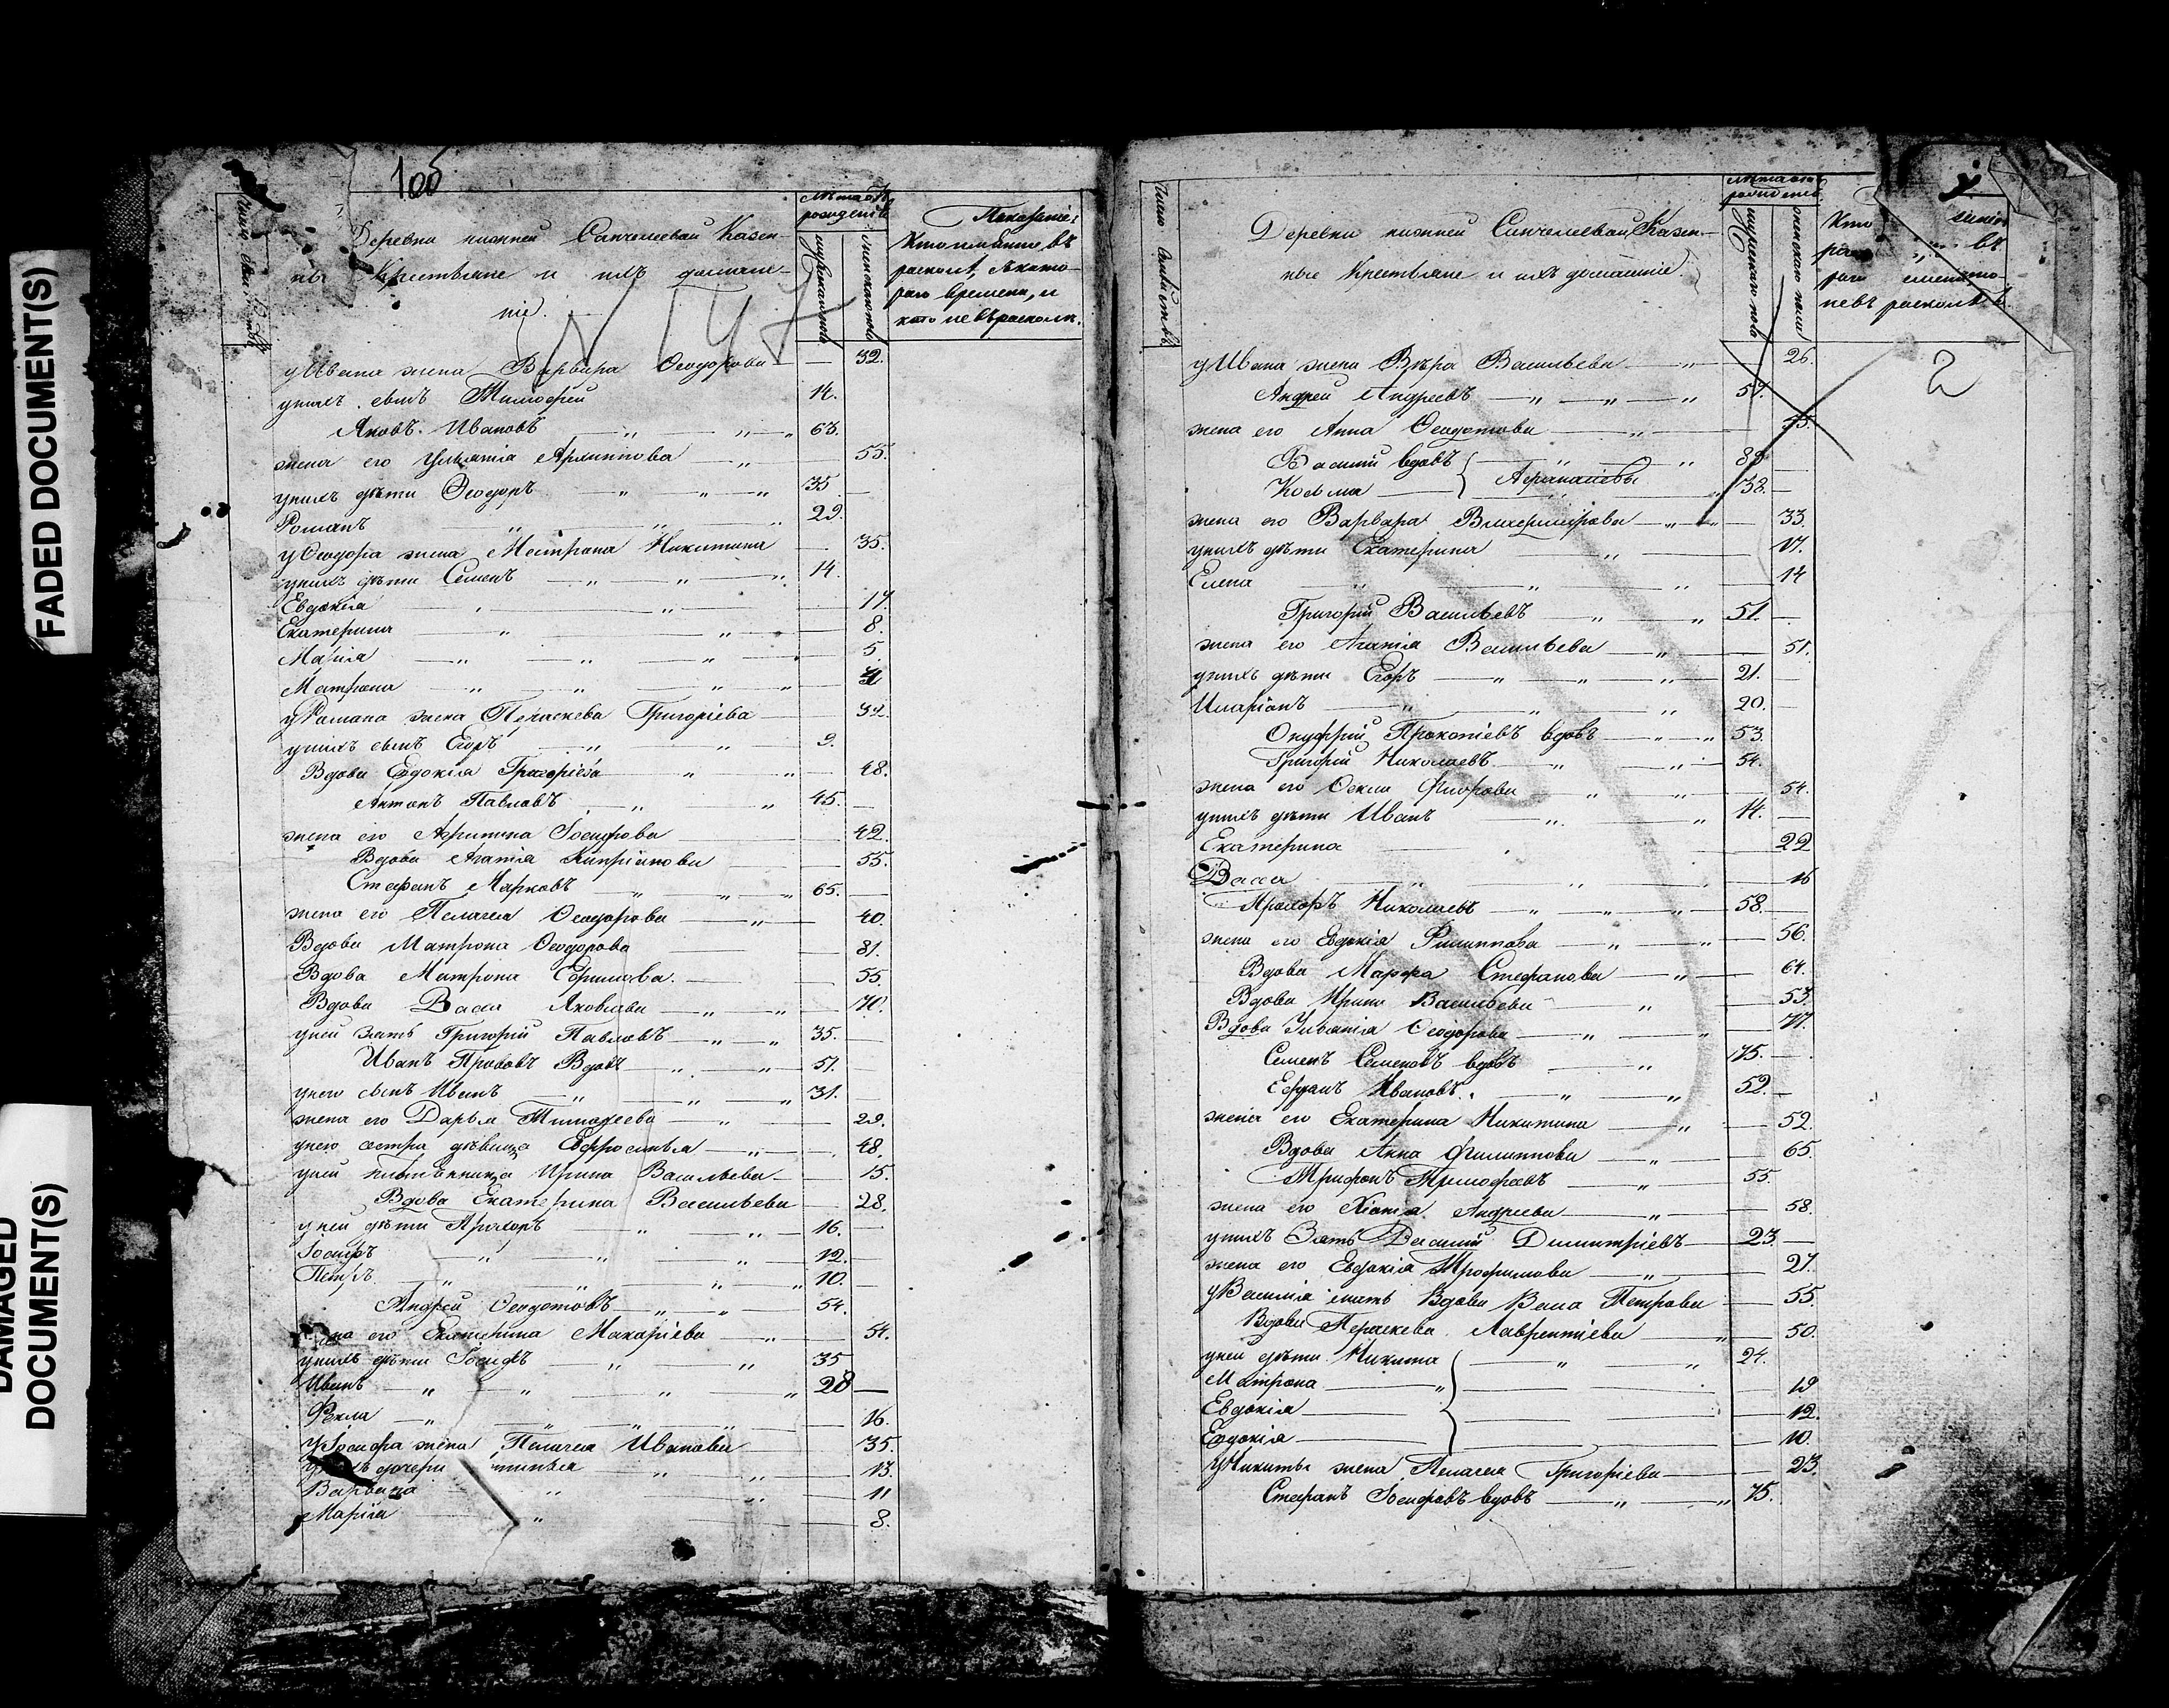 FADED DOCUMENT(S)
DAMAGED
DOCUMENT(S)
Число
Деревни нижней Санчелеевай Казен-
ные Крестьяне и ихъ домаш-
ніе.
Лѣта отъ
рожденія
мужеска пола
женска пола
Показаніе:
Кто именно въ
расколѣ, съ кото-
раго времени, и
кто не въ расколѣ.
у Ивана жена Варвара Ѳеодорова — 32.
у нихъ сынъ Тимофей 14.
Яковъ Ивановъ — „ — „ — „ 63.
жена его Ульянія Архиппова — „ — 55.
у нихъ дѣти Ѳеодоръ „ „ „ 35 —
Романъ „ „ „ 29.
у Ѳеодора жена Матрона Никитина — 35.
у нихъ дѣти Семенъ — „ — „ — „ 14.
Евдокія „ — „ — 17.
Екатерина — „ — „ — 8.
Марія — „ — „ — „ — 5
Матрона — „ „ — „ — „
у Романа жена Параскева Григоріева — 32.
у нихъ сынъ Егоръ — „ „ 9.
Вдова Евдокія Григоріева „ — „ — 48.
Антонъ Павловъ — „ — „ 45. —
жена его Агрипина Іосифова — 42.
Вдова Агапія Кипріянова — 55.
Стефанъ Марковъ — „ — „ — „ 65. —
жена его Пелагея Ѳеодорова — „ — 40.
Вдова Матрона Ѳеодорова 81.
Вдова Матрона Ефимова. — 55
Вдова Васса Яковлева — „ — „ — 70.
у ней зять Григорій Павловъ — „ — „ 35. —
Иванъ Прововъ Вдовъ — „ — „ 51. —
у него сынъ Иванъ — „ — „ — „ 31. —
жена его Дарья Тимофеева — „ — 29.
у него сестра дѣвица Ефросинья — „ — 48.
у ней племянница Ирина Васильева — 15.
Вдова Екатерина Васильева — 28.
у ней дѣти Прохоръ — „ — „ 16. —
Іосифъ „ „ — „ 12. —
Петръ — „ „ „ — „ 10. —
Андрей Ѳеодотовъ — „ — „ — 54.
жена его Екатерина Макаріева — „ — 54.
у нихъ дѣти Іосифъ — „ — „ 35
Иванъ — „ „ „ — „ 28 —
Фекла — „ „ „ „ — 16.
у Іосифа жена Пелагея Иванова — 35.
дочери „ „ — 13.
Варвара „ „ — 11
Марія — „ — 8.
Число Семействъ
Деревни нижней Санчелеевай Казен-
ные Крестьяне и ихъ домашніе.
Лѣта отъ
рожденія
мужескаго пола
женскаго пола
Кто
въ
невъ расколѣ.
2
у Ивана жена Вѣра Васильева — „ — 26.
Андрей Андреевъ — „ — „ — „
жена его Анна Ѳеодотова — „ —
Василій вдовъ — „ — „
Косьма — Афанасіевы 38. —
жена его Варвара — „ — „ — 33.
у нихъ дѣти Екатерина — „ — 17.
Елена „ — „ — „ — 14
Григорій Васильевъ — „ — „ 51. —
жена его Агапія Васильева — „ — 51.
у нихъ дѣти Егоръ — „ — „ — „ 21. —
Иларіонъ — „ — „ — „ 20. —
Онуфрій Прокопіевъ вдовъ — „ — „ 53.
Григорій Николаевъ — „ — „ — 54.
жена его — „ — „ — 54.
у нихъ дѣти Иванъ „ — „ 14. —
Екатерина — 22
Васса — „ — „ — 16
Прохоръ Николаевъ — „ — „ — „ 58. —
жена его Евдокія Филиппова — „ — „ — 56.
Вдова Марфа Стефанова — „ — 64.
Вдова Ирина Васильева — „ — 53.
Вдова Ульянія Ѳеодорова — „ — „ — 77.
Семенъ Семеновъ вдовъ — „ 75. —
Ефранъ Ивановъ. „ — „ 52. —
жена его Екатерина Никитина — „ — 52.
Вдова Анна Филиппова — „ — 65.
Трифонъ Тримофеевъ — „ 55. —
жена его Хіонія Андреева — „ — 58.
у нихъ Зять Василій Димитріевъ — 23. —
жена его Евдокія Трофимова — „ — 27.
у Василія мать Вдова Васса Петрова — 55.
Вдова Параскева Лаврентіева — „ — 50.
у ней дѣти Никита — „ — „ 24.
Матрона — „ — 19
Евдокія — 12.
Евдокія — 10.
у Никиты жена Пелагея Григоріева — 23.
Стефанъ Іосифовъ вдовъ — „ — „ 75.